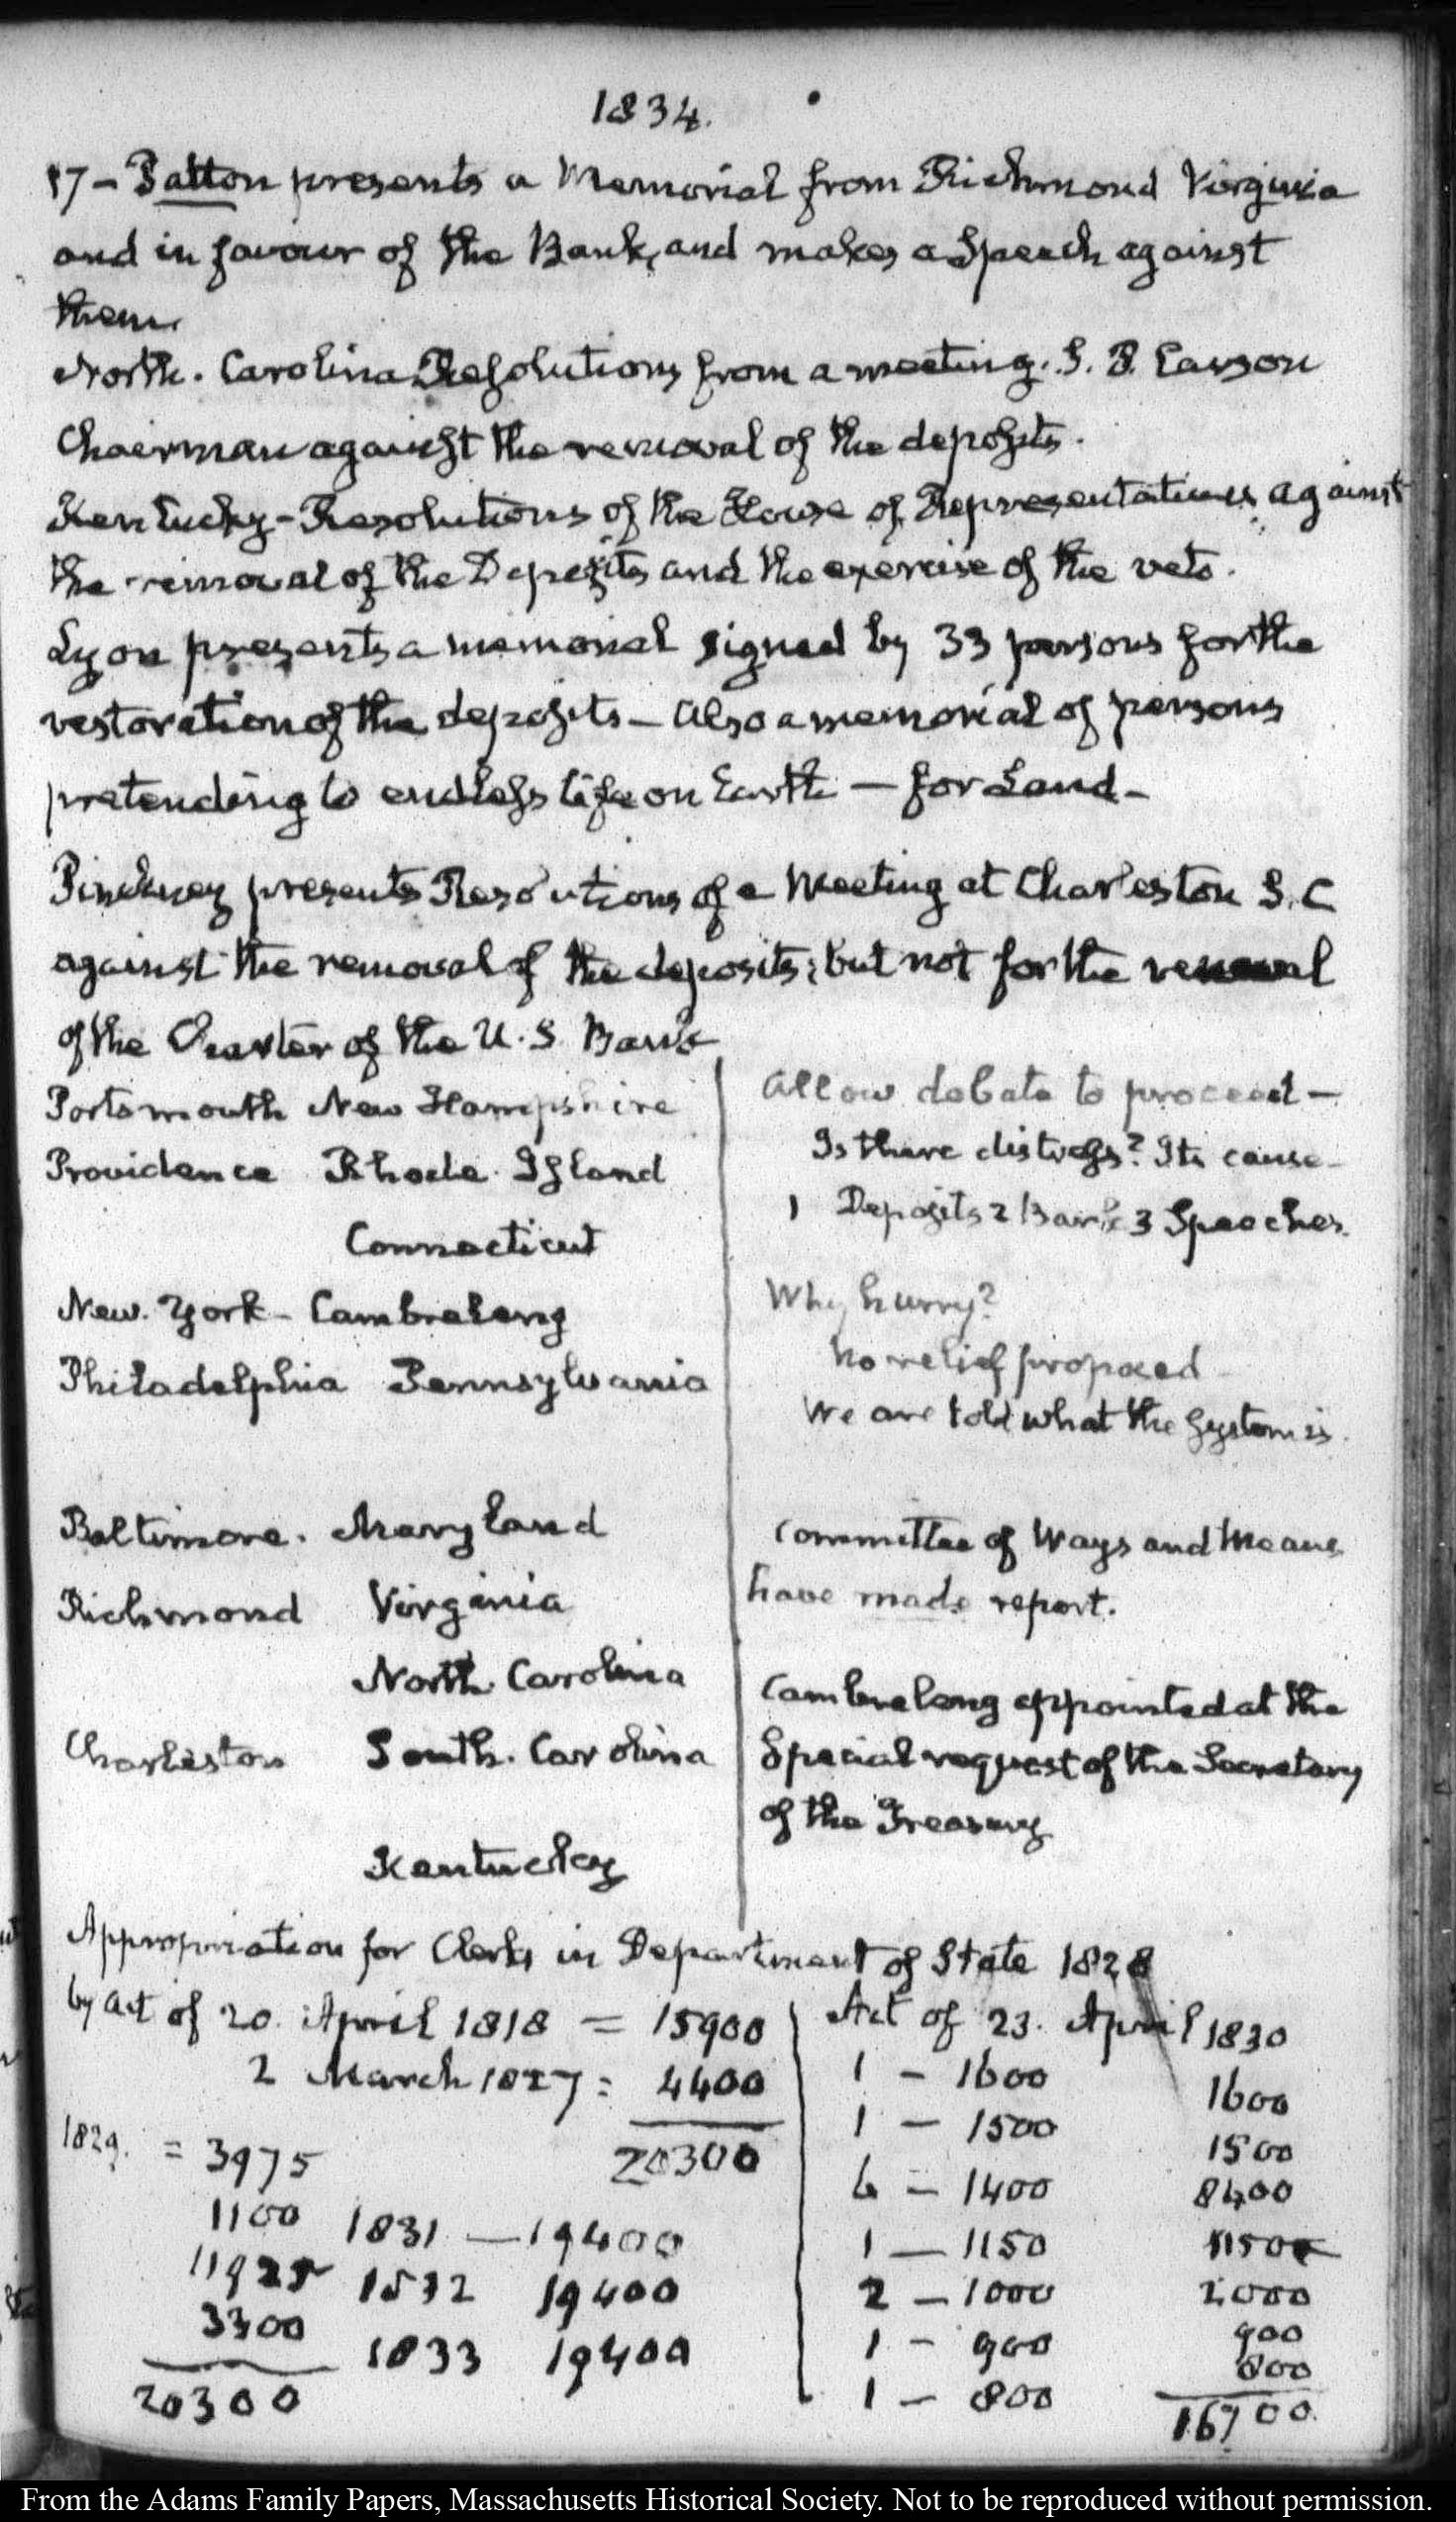 1834.
17 - Patton presents a Memorial from Richmond Virginia
and in favour of the Bank, and makes a Speech against
them.
North. Carolina Resolutions from a meeting. S. P. Carson
Chairman against the removal of the deposits.
Kentucky - Resolutions of the House of Representatives against
the removal of the Deposits and the exercise of the veto.
Lyon presents a memorial signed by 33 persons for the
restoration of the deposits - Also a memorial of persons
pretending to endless life on Earth - for Land -
Pinckney presents Resolutions of a Meeting at Charleston S. C
against the removal of the deposits; but not for the renewal
of the Charter of the U. S. Bank
Portsmouth New Hampshire
Providence Rhode Island
Connecticut
New. York - Cambreleng
Philadelphia Pennsylvania
Baltimore. Maryland
Richmond Virginia
North Carolina
Charleston South. Carolina
Kentucky
Allow debate to proceed -
Is there distress? Its cause -
1 Deposits 2 Bank 3 Speeches.
Why hurry?
No relief proposed
We are told what the System is.
Committee of Ways and Means
have made report.
Cambreleng appointed at the
Special request of the Secretary
of the Treasury
Appropriation for Clerks in Department of State 1828
by Act of 20. April 1818 = 15900
2 March 1827 = 4400
20300
1829. = 3975
1100
11925
3300
20300
1831 - 19400
1832 19400
1833 19400
Act of 23. April 1830
1 - 1600 1600
1 - 1500 1500
6 - 1400 8400
1 - 1150 1150
2 - 1000 2000
1 - 900 900
1 - 800 800
16700
From the Adams Family Papers, Massachusetts Historical Society. Not to be reproduced without permission.